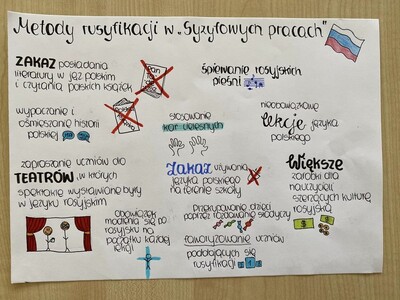 Metody rusyfikacji w „Syzyfowych pracach”
ZAKAZ posiadania
literatury w jęz. polskim
i czytania polskich książek
śpiewanie rosyjskich
pieśni
wypaczanie i
ośmieszanie historii
polskiej
stosowanie
kar cielesnych
nieobowiązkowe
lekcje języka
polskiego
zapraszanie uczniów do
TEATRÓW, w których
spektakle wystawiane były
w języku rosyjskim
Zakaz używania
języka polskiego
na terenie szkoły
Większe
zarobki dla
nauczycieli
szerzących kulturę
rosyjską
obowiązek
modlenia się po
rosyjsku na
początku każdej
lekcji
Przekupywanie dzieci
poprzez rozdawanie słodyczy
faworyzowanie uczniów
poddających się
rusyfikacji